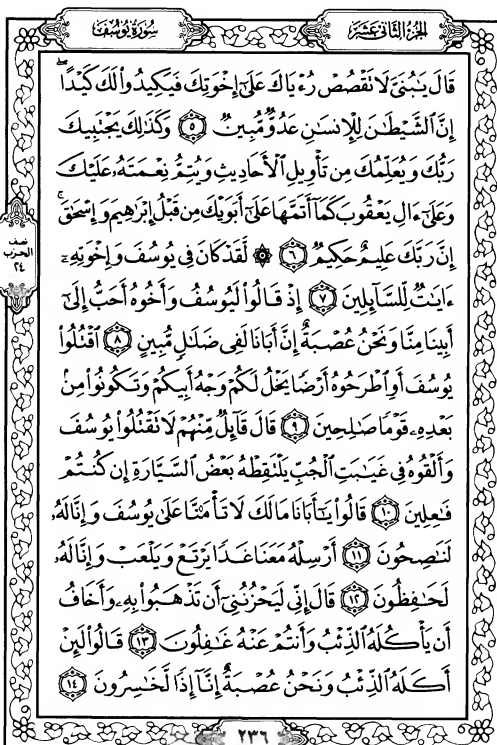 الجزء الثاني عشر
سورة يوسف
قَالَ يَٰبُنَيَّ لَا تَقْصُصْ رُءْيَاكَ عَلَىٰٓ إِخْوَتِكَ فَيَكِيدُوا۟ لَكَ كَيْدًا ۖ
إِنَّ ٱلشَّيْطَٰنَ لِلْإِنسَٰنِ عَدُوٌّ مُّبِينٌ ٥ وَكَذَٰلِكَ يَجْتَبِيكَ
رَبُّكَ وَيُعَلِّمُكَ مِن تَأْوِيلِ ٱلْأَحَادِيثِ وَيُتِمُّ نِعْمَتَهُۥ عَلَيْكَ
وَعَلَىٰٓ ءَالِ يَعْقُوبَ كَمَآ أَتَمَّهَا عَلَىٰٓ أَبَوَيْكَ مِن قَبْلُ إِبْرَٰهِيمَ وَإِسْحَٰقَ ۚ
إِنَّ رَبَّكَ عَلِيمٌ حَكِيمٌ ٦ ۞ لَّقَدْ كَانَ فِى يُوسُفَ وَإِخْوَتِهِۦٓ
ءَايَٰتٌ لِّلسَّآئِلِينَ ٧ إِذْ قَالُوا۟ لَيُوسُفُ وَأَخُوهُ أَحَبُّ إِلَىٰٓ
أَبِينَا مِنَّا وَنَحْنُ عُصْبَةٌ إِنَّ أَبَانَا لَفِى ضَلَٰلٍ مُّبِينٍ ٨ ٱقْتُلُوا۟
يُوسُفَ أَوِ ٱطْرَحُوهُ أَرْضًا يَخْلُ لَكُمْ وَجْهُ أَبِيكُمْ وَتَكُونُوا۟ مِنۢ
بَعْدِهِۦ قَوْمًا صَٰلِحِينَ ٩ قَالَ قَآئِلٌ مِّنْهُمْ لَا تَقْتُلُوا۟ يُوسُفَ
وَأَلْقُوهُ فِى غَيَٰبَتِ ٱلْجُبِّ يَلْتَقِطْهُ بَعْضُ ٱلسَّيَّارَةِ إِن كُنتُمْ
فَٰعِلِينَ ١٠ قَالُوا۟ يَٰٓأَبَانَا مَا لَكَ لَا تَأْمَ۫نَّا عَلَىٰ يُوسُفَ وَإِنَّا لَهُۥ
لَنَٰصِحُونَ ١١ أَرْسِلْهُ مَعَنَا غَدًا يَرْتَعْ وَيَلْعَبْ وَإِنَّا لَهُۥ
لَحَٰفِظُونَ ١٢ قَالَ إِنِّى لَيَحْزُنُنِىٓ أَن تَذْهَبُوا۟ بِهِۦ وَأَخَافُ
أَن يَأْكُلَهُ ٱلذِّئْبُ وَأَنتُمْ عَنْهُ غَٰفِلُونَ ١٣ قَالُوا۟ لَئِنْ
أَكَلَهُ ٱلذِّئْبُ وَنَحْنُ عُصْبَةٌ إِنَّآ إِذًا لَّخَٰسِرُونَ ١٤
نصف
الحزب
٢٤
٢٣٦